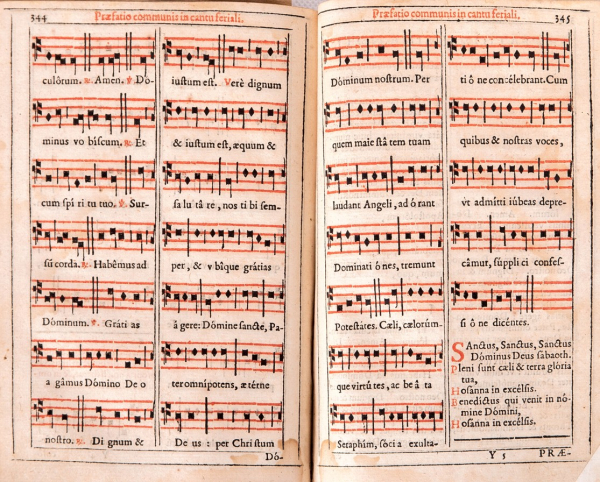 344 Præfatio communis in cantu feriali.
culórum. ℟. Amen. ℣. Dó-
minus vo bíscum. ℟. Et
cum spí ri tu tuo. ℣. Sur-
sū corda. ℟. Habémus ad
Dóminum. ℣. Gráti as
a gámus Dómino De o
nostro. ℟. Di gnum &
iustum est. Verè dignum
& iustum est, æquum &
sa lu tá re, nos ti bi sem-
per, & vbíque grátias
á gere: Dómine sancte, Pa-
teromnípotens, ætérne
De us : per Chri stum
Dó-
Præfatio communis in cantu feriali. 345
Dóminum nostrum. Per
quem maie stá tem tuam
laudant Angeli, ad ó rant
Dominati ó nes, tremunt
Potestátes. Cæli, cælorúm-
que virtú tes, ac be á ta
Séraphim, sóci a exulta-
ti ó ne concélebrant. Cum
quibus & nostras voces,
vt admítti iúbeas depre-
cámur, súppli ci confes-
si ó ne dicéntes.
Sanctus, Sanctus, Sanctus
Dóminus Deus sabaoth.
Pleni sunt cæli & terra glória
tua,
Hosanna in excélsis.
Benedíctus qui venit in nó-
mine Dómini,
Hosanna in excélsis.
Y 5 PRÆ-